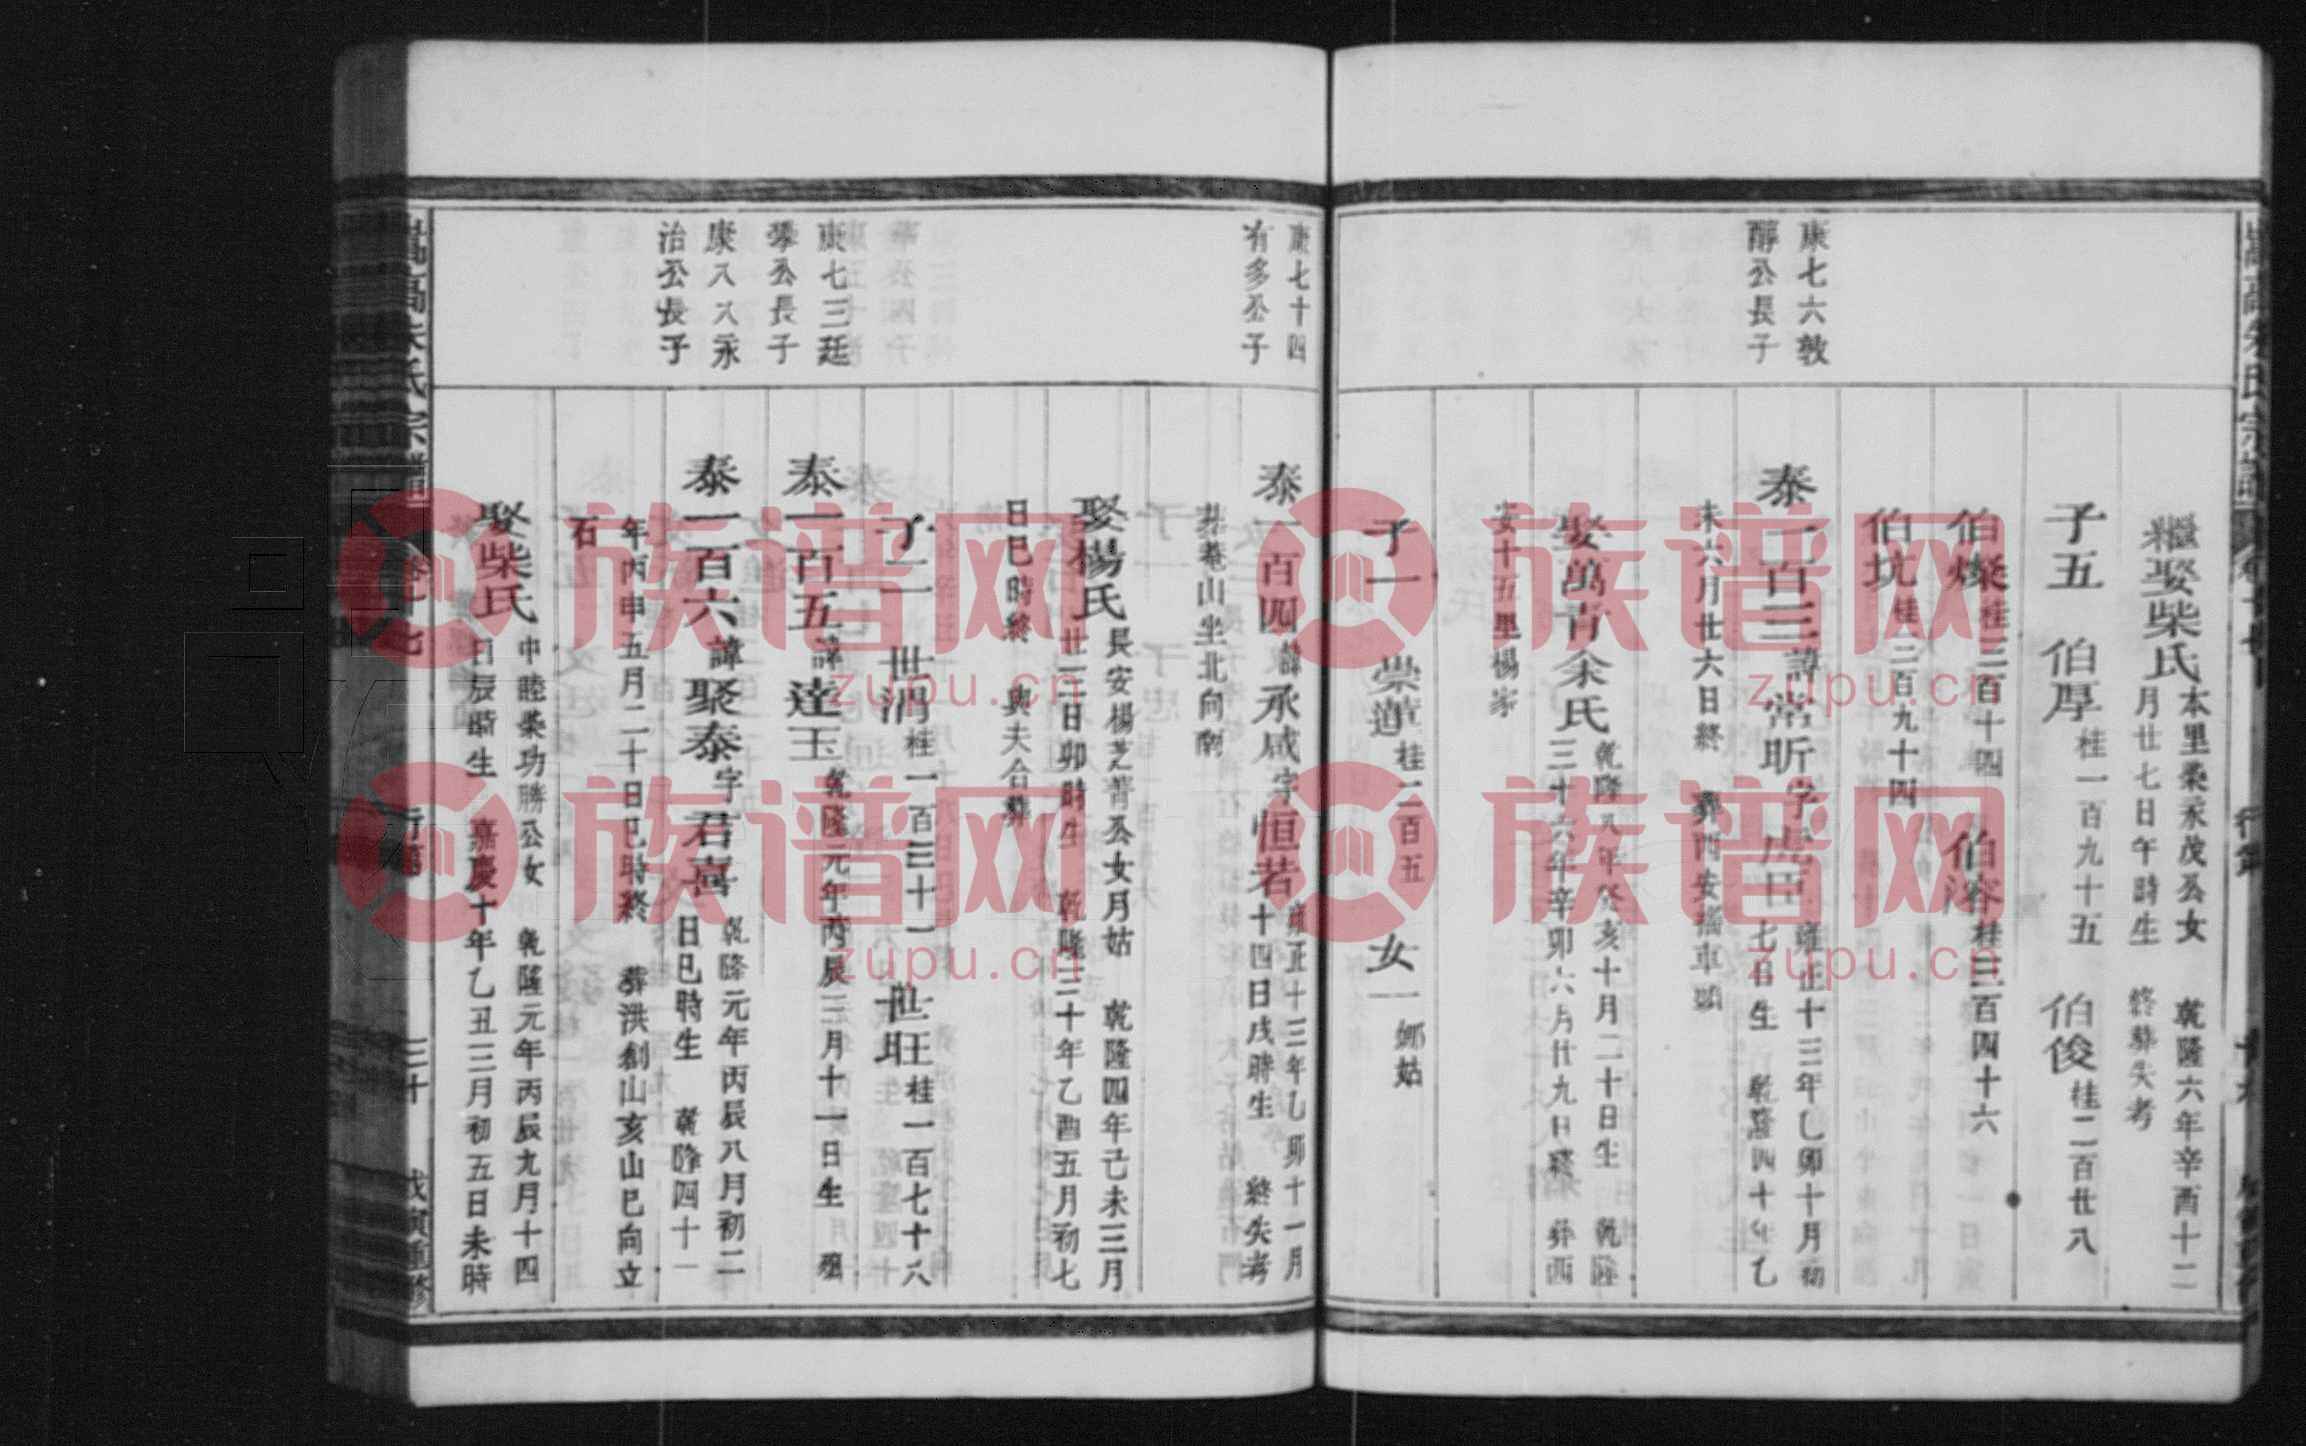 繼娶柴氏
本里柴永茂公女 乾隆六年辛酉十二
月廿七日午時生 終葬失考
子五 伯厚桂一百九十五 伯俊桂二百廿八
伯燦桂三百十四 伯溶桂三百四十六
伯坑桂二百九十四
康七六敦
醇公長子
泰一百三諱常昕字
雍正十三年乙卯十月初
七日生 乾隆四十年乙
未六月廿六日終 葬西安牆車頭
娶萬青余氏
乾隆八年癸亥十月二十日生 乾隆
三十六年辛卯六月廿九日終 葬西
安十五里楊家
子一 崇道桂二百五 女一鄉姑
康七十四
有多公子
泰一百四諱承咸字恒若
雍正十三年乙卯十一月
十四日戌時生 終失考
葬菴山坐北向南
娶楊氏
長安楊芝菁公女月姑 乾隆四年己未三月
廿三日卯時生 乾隆三十年乙酉五月初七
日巳時終 與夫合葬
子二 世淯桂一百三十一 世旺桂一百七十八
康七三廷
攀公長子
泰一百五諱達玉乾隆元年丙辰三月十一日生 殤
康八八永
治公長子
泰一百六諱聚泰字君喜
乾隆元年丙辰八月初二
日巳時生 乾隆四十一
年丙申五月二十日巳時終 葬洪創山亥山巳向立
石
娶柴氏
中睦柴功勝公女 乾隆元年丙辰九月十四
日辰時生 嘉慶十年乙丑三月初五日未時
朱氏宗譜 卷十七 行第 三十 戊寅重修
族谱网
zupu.cn
族谱网
zupu.cn
族谱网
zupu.cn
族谱网
zupu.cn